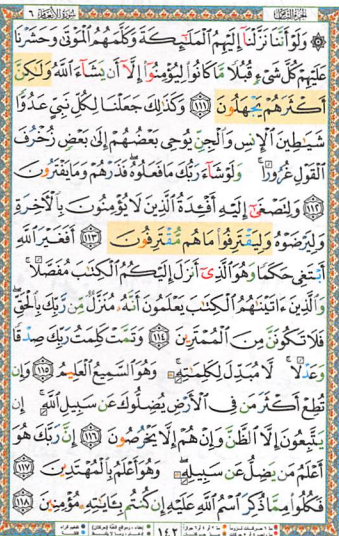 الجزء الثامن سورة الأنعام ٦
۞ وَلَوْ أَنَّنَا نَزَّلْنَا إِلَيْهِمُ الْمَلَٰٓئِكَةَ وَكَلَّمَهُمُ الْمَوْتَىٰ وَحَشَرْنَا
عَلَيْهِمْ كُلَّ شَىْءٍ قُبُلًا مَّا كَانُوا لِيُؤْمِنُوٓا إِلَّآ أَن يَشَآءَ اللَّهُ وَلَٰكِنَّ
أَكْثَرَهُمْ يَجْهَلُونَ ١١١ وَكَذَٰلِكَ جَعَلْنَا لِكُلِّ نَبِىٍّ عَدُوًّا
شَيَٰطِينَ الْإِنسِ وَالْجِنِّ يُوحِى بَعْضُهُمْ إِلَىٰ بَعْضٍ زُخْرُفَ
الْقَوْلِ غُرُورًا ۚ وَلَوْ شَآءَ رَبُّكَ مَا فَعَلُوهُ ۖ فَذَرْهُمْ وَمَا يَفْتَرُونَ
١١٢ وَلِتَصْغَىٰٓ إِلَيْهِ أَفْـِٔدَةُ الَّذِينَ لَا يُؤْمِنُونَ بِالْأَخِرَةِ
وَلِيَرْضَوْهُ وَلِيَقْتَرِفُوا مَا هُم مُّقْتَرِفُونَ ١١٣ أَفَغَيْرَ اللَّهِ
أَبْتَغِى حَكَمًا وَهُوَ الَّذِىٓ أَنزَلَ إِلَيْكُمُ الْكِتَٰبَ مُفَصَّلًا ۚ
وَالَّذِينَ ءَاتَيْنَٰهُمُ الْكِتَٰبَ يَعْلَمُونَ أَنَّهُۥ مُنَزَّلٌ مِّن رَّبِّكَ بِالْحَقِّ ۖ
فَلَا تَكُونَنَّ مِنَ الْمُمْتَرِينَ ١١٤ وَتَمَّتْ كَلِمَتُ رَبِّكَ صِدْقًا
وَعَدْلًا ۚ لَّا مُبَدِّلَ لِكَلِمَٰتِهِۦ ۚ وَهُوَ السَّمِيعُ الْعَلِيمُ ١١٥ وَإِن
تُطِعْ أَكْثَرَ مَن فِى الْأَرْضِ يُضِلُّوكَ عَن سَبِيلِ اللَّهِ ۚ إِن
يَتَّبِعُونَ إِلَّا الظَّنَّ وَإِنْ هُمْ إِلَّا يَخْرُصُونَ ١١٦ إِنَّ رَبَّكَ هُوَ
أَعْلَمُ مَن يَضِلُّ عَن سَبِيلِهِۦ ۖ وَهُوَ أَعْلَمُ بِالْمُهْتَدِينَ ١١٧
فَكُلُوا مِمَّا ذُكِرَ اسْمُ اللَّهِ عَلَيْهِ إِن كُنتُم بِـَٔايَٰتِهِۦ مُؤْمِنِينَ ١١٨
١٤٢